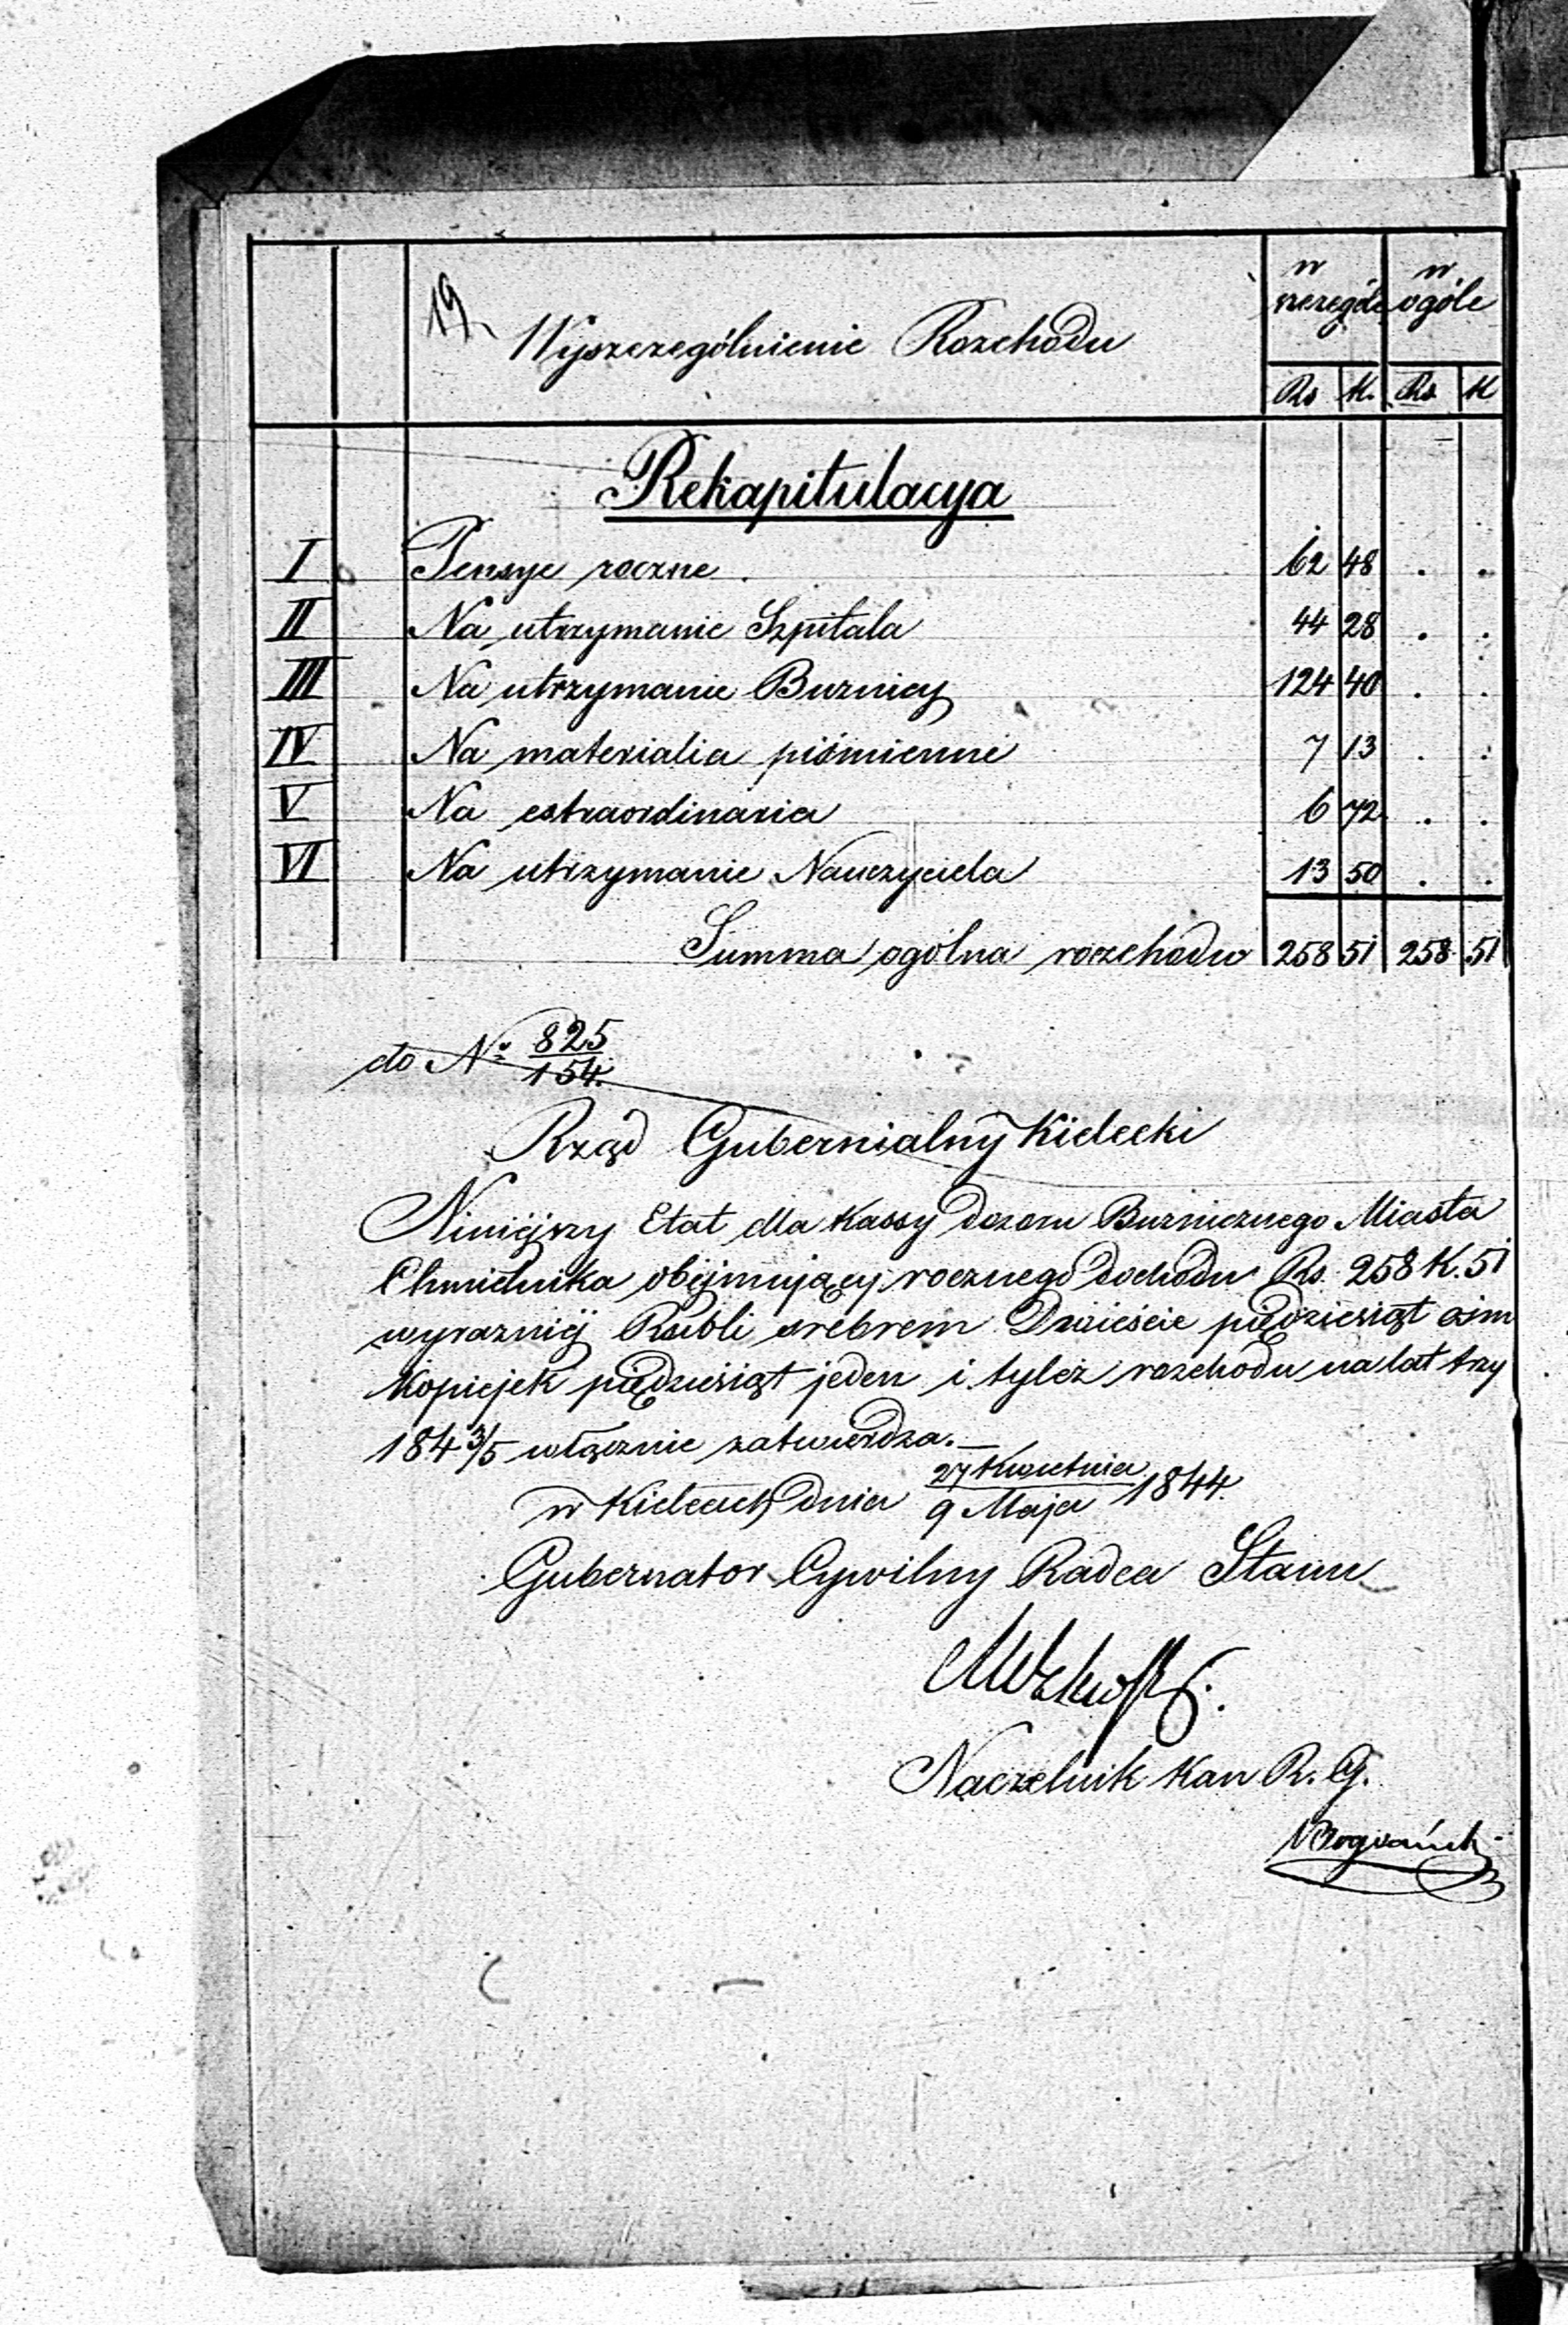 19.
Wyszczególnienie Rozchodu
w szczególe
w ogóle
Rs K. Rs K
Rekapitulacya
I Pensye roczne 62 48 . .
II Na utrzymanie Szpitala 44 28 . .
III Na utrzymanie Buznicy 124 40 . .
IV Na materialia piśmienne 7 13 . .
V Na extraordinaria 6 72 . .
VI Na utrzymanie Nauczyciela 13 50 . .
Summa ogólna rozchodu 258 51 258 51
do No 825/154.
Rząd Gubernialny Kielecki
Niniejszy Etat dla Kassy dozoru Buznicznego Miasta
Chmielnika obejmujący rocznego dochodu Rs. 258 K. 51
wyrazniej Rubli srebrem Dwieście pięćdziesiąt ośm
Kopiejek pięćdziesiąt jeden i tyleż rozchodu na lat trzy
184 3/5 włącznie zatwierdza.—
w Kielcach dnia 27 Kwietnia / 9 Maja 1844.
Gubernator Cywilny Radca Stanu
Naczelnik Kan R. G.